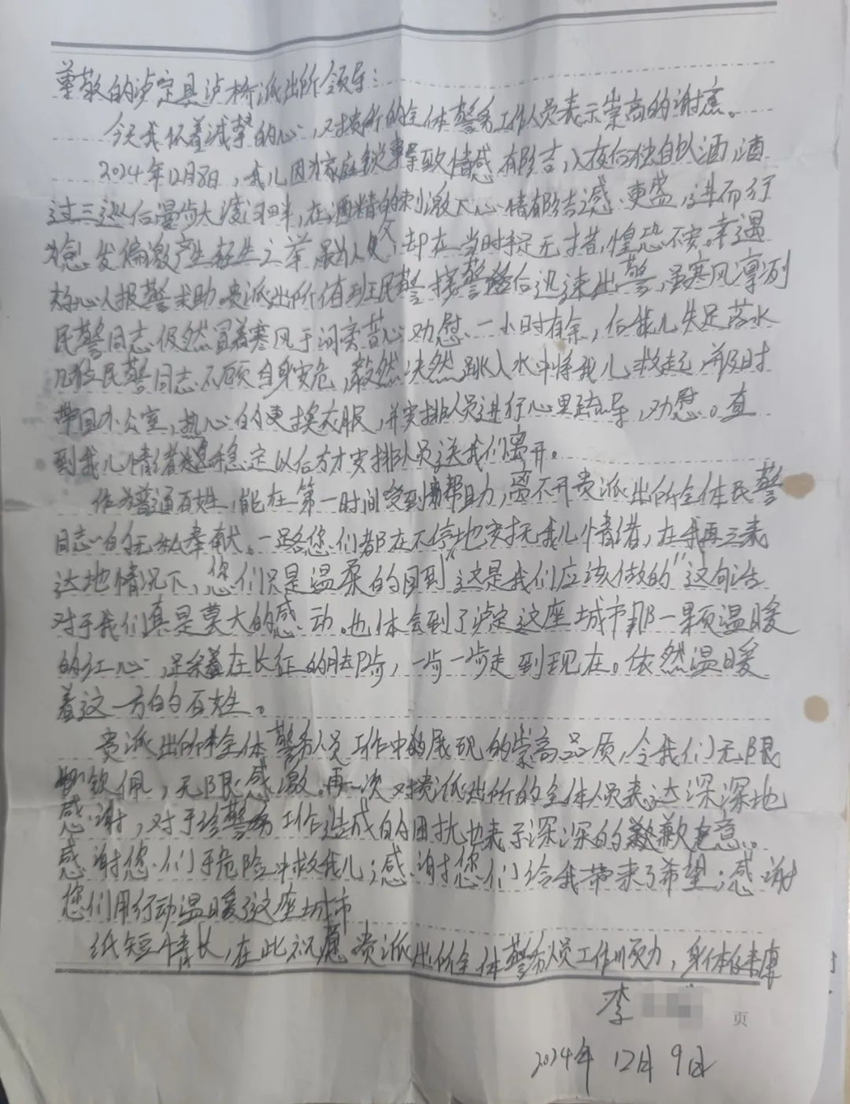 尊敬的泸定县泸桥派出所领导：
今天我怀着诚挚的心，对贵所的全体警务工作人员表示崇高的谢意。
2024年12月8日，我儿因为家庭琐事导致情感有纠吉，入夜后独自饮酒，酒
过三巡后漫步大渡河畔，在酒精的刺激下心情郁结感更盛，进而行
为忽发偏激产生轻生之举。虽为人父，却在当时手足无措，惶恐不安。幸遇
好心人报警求助，贵派出所值班民警接警后迅速出警，虽寒风凛冽
民警同志仍然冒着寒风于河旁苦心劝慰一小时有余，后我儿失足落水
几位民警同志不顾自身安危，毅然决然跳入水中将我儿救起，并及时
带回办公室，热心的更换衣服，并安排人员进行心里疏导，劝慰。直
到我儿情绪稳定以后方才安排人员送我们离开。
作为普通百姓，能在第一时间受到帮助，离不开贵派出所全体民警
同志的无私奉献。一路您们都在不停地安抚我儿情绪，在我再三表
达地情况下，您们只是温柔的回到“这是我们应该做的”这句话
对于我们真是莫大的感动。也体会到了泸定这座城市那一颗温暖
的红心，是踩着在长征的脚步，一步一步走到现在。依然温暖
着这一方的百姓。
贵派出所全体警务人员工作中的展现的崇高品质，令我们无限
钦佩，无限感激。再一次对贵派出所的全体人员表达深深地
感谢，对于给警务工作造成的困扰也表示深深的歉意。
感谢您们于危险中救我儿；感谢您们给我带来了希望；感谢
您们用行动温暖了这座城市
纸短情长，在此祝愿贵派出所全体警务人员工作顺利，身体健康
李
页
2024年12月9日